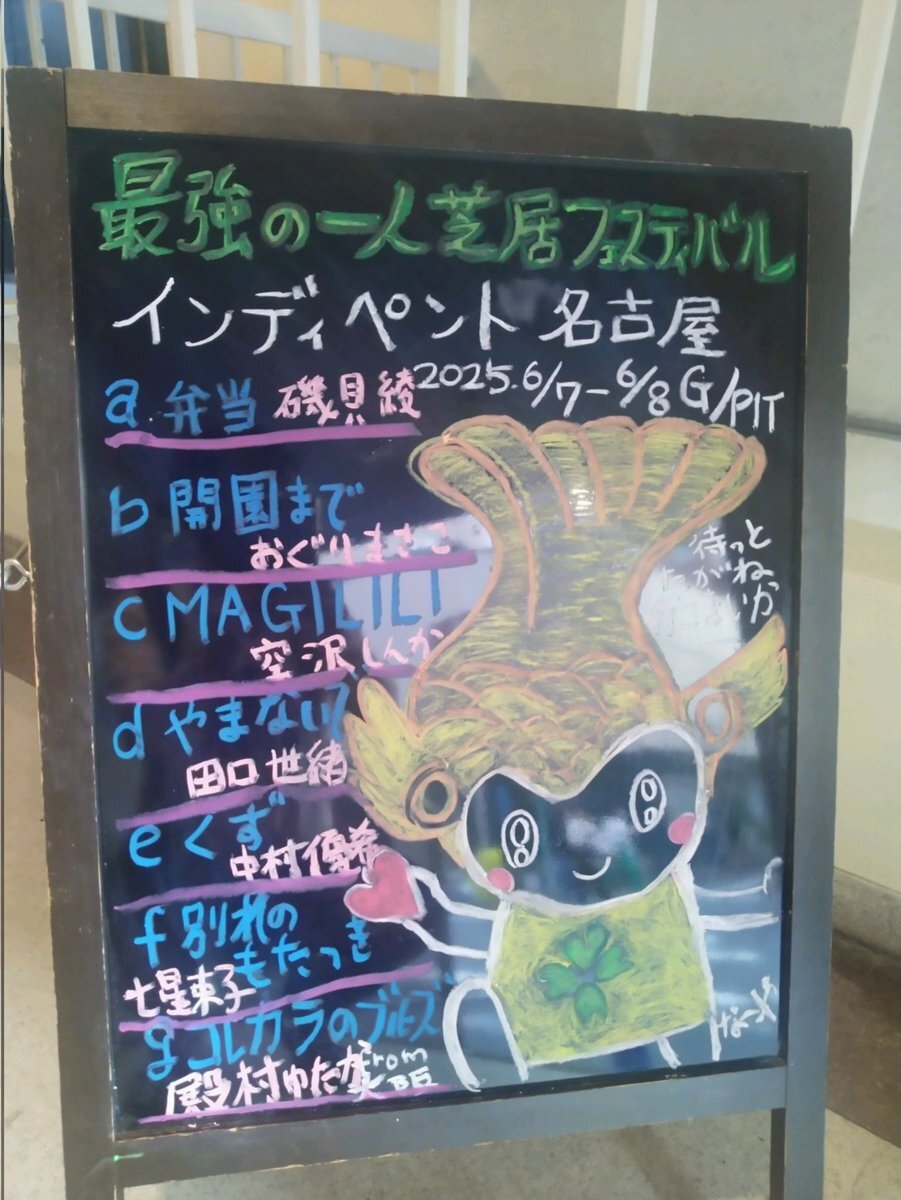 最強の一人芝居フェスティバル
インディペント 名古屋
2025.6/7-6/8 G/PIT
a 弁当 磯貝綾
b 開園まで
おぐりまさこ
c MAGILILI
空沢しんか
d やまない
田口世緒
e くず
中村優希
f 別れの
もたつき
七星東子
g コレカラのブルーズ
殿村ゆたか
from
待っと
たがね